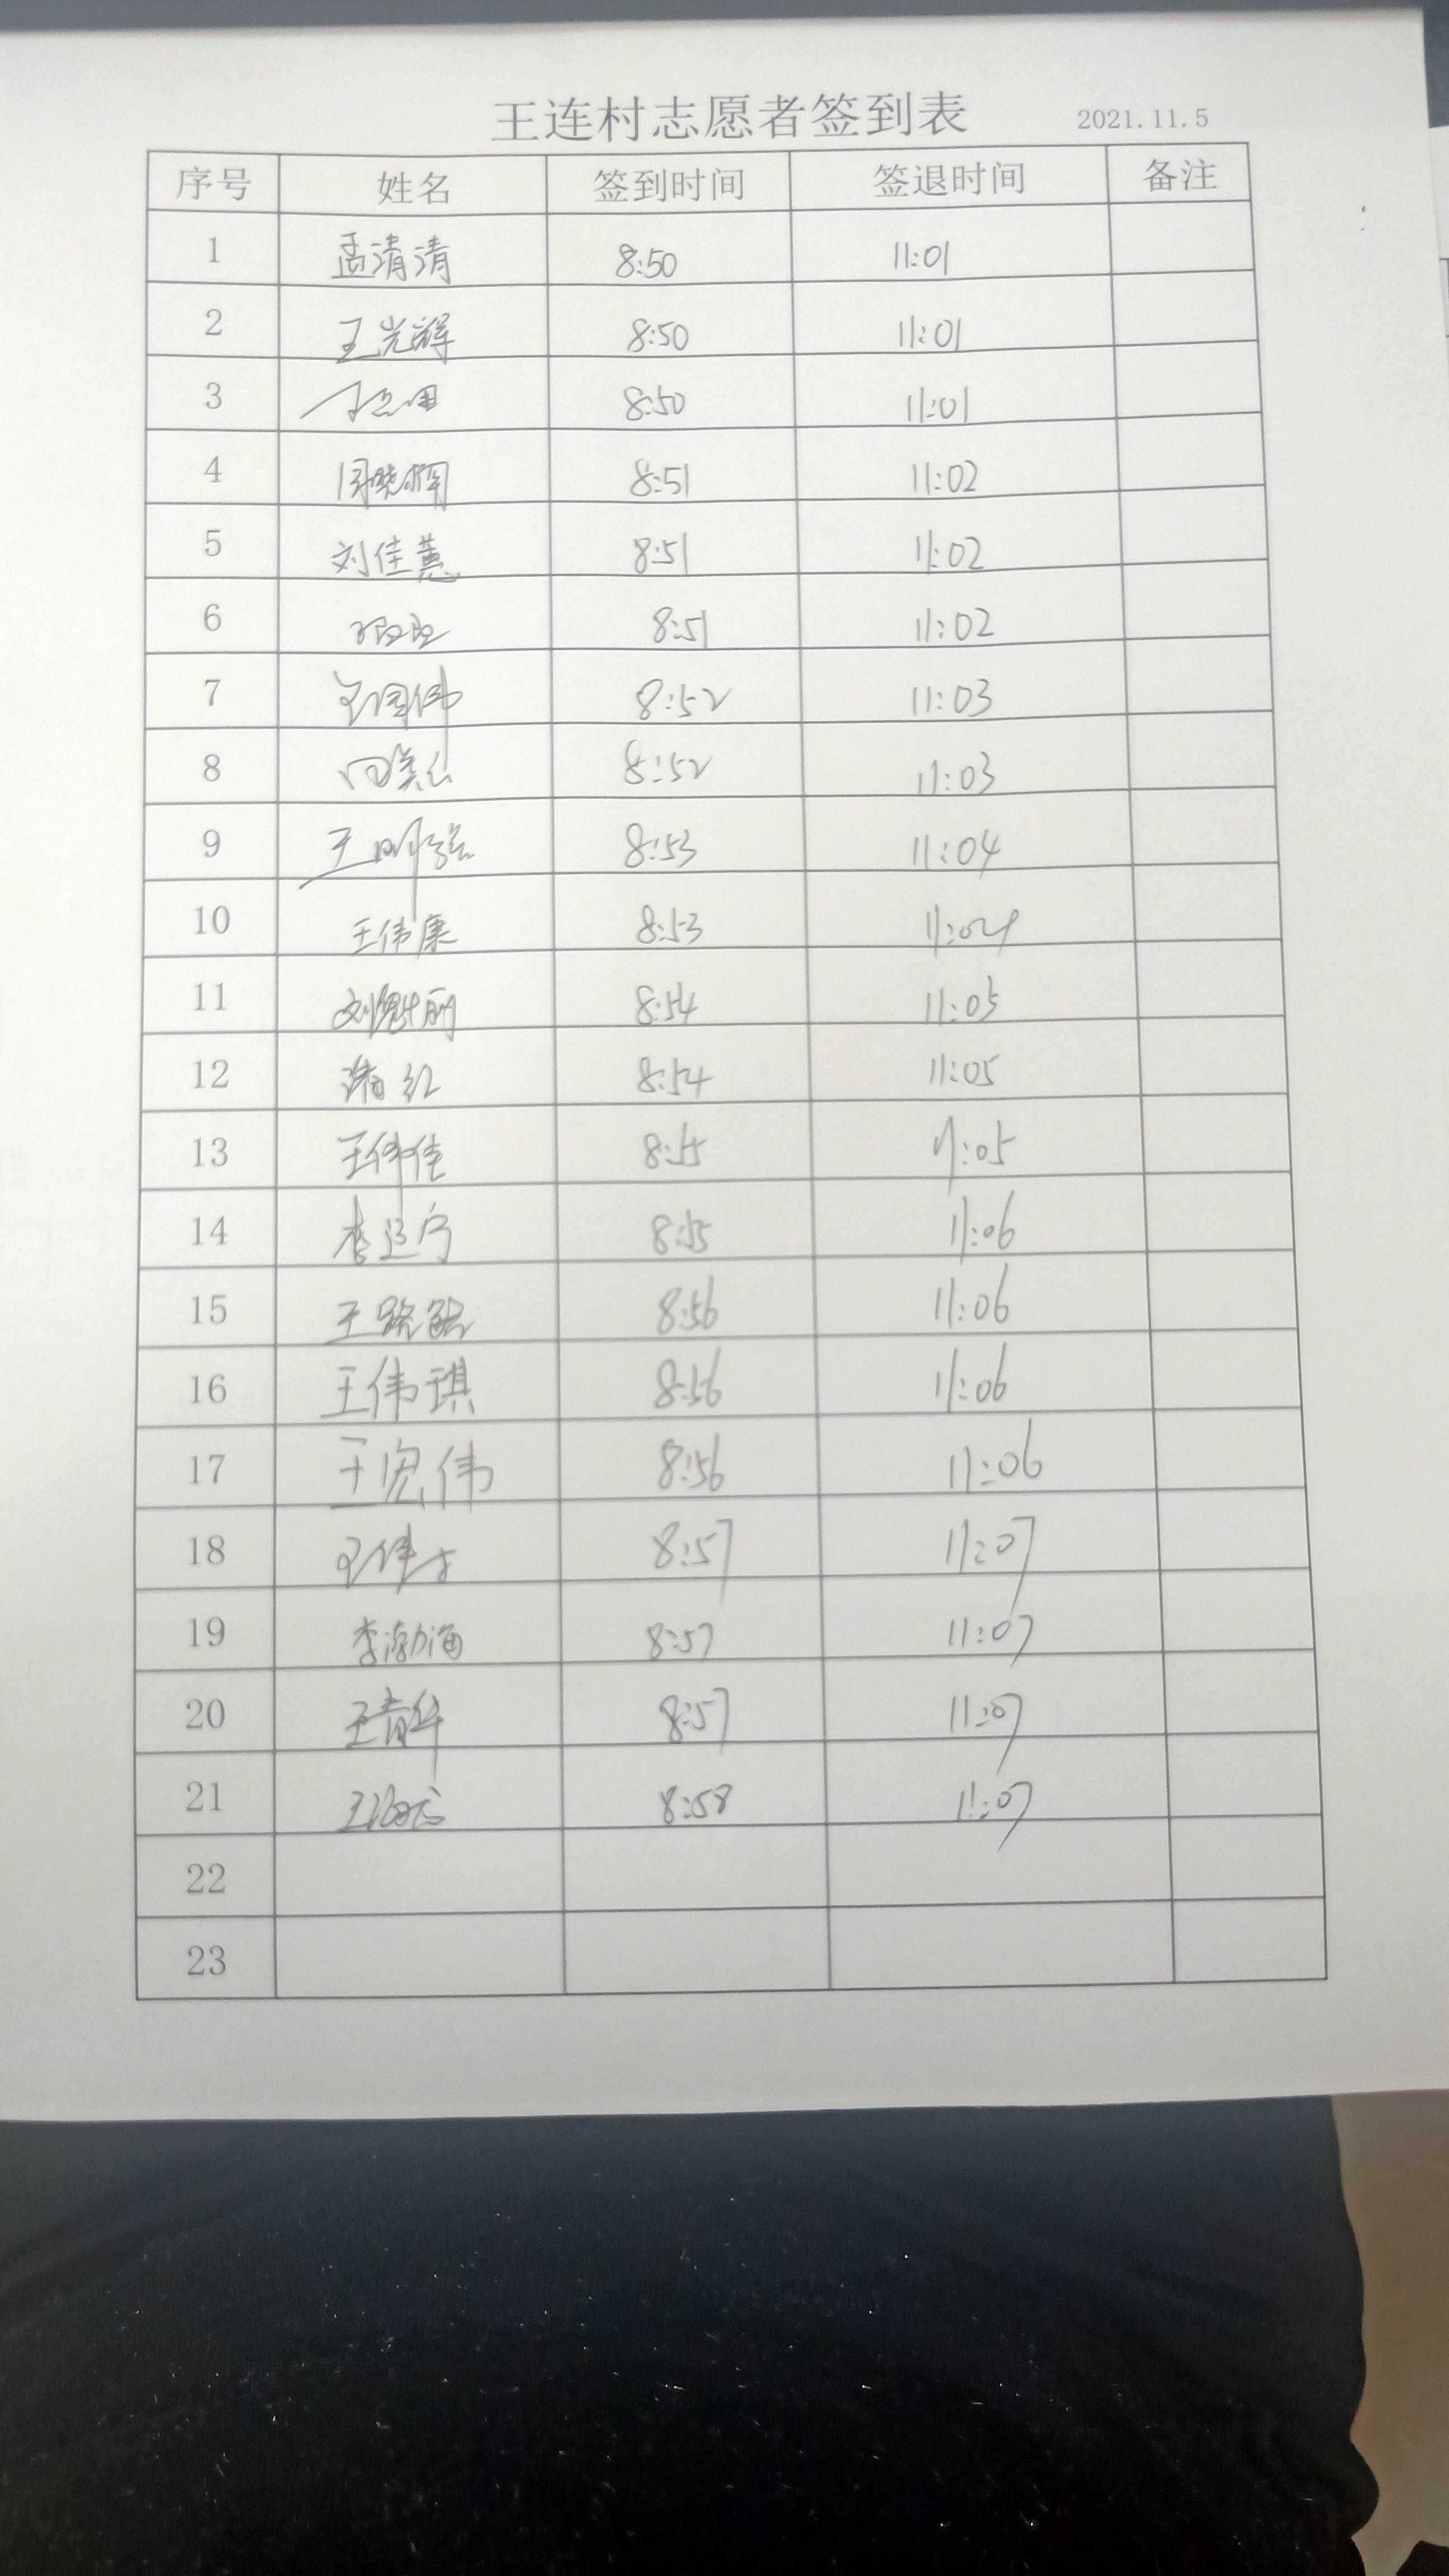 王连村志愿者签到表 2021.11.5
序号 姓名 签到时间 签退时间 备注
1 孟清清 8:50 11:01
2 王光辉 8:50 11:01
3 8:50 11:01
4 8:51 11:02
5 刘佳慧 8:51 11:02
6 8:51 11:02
7 王国伟 8:52 11:03
8 8:52 11:03
9 王明强 8:53 11:04
10 王伟康 8:53 11:04
11 8:54 11:05
12 8:54 11:05
13 王伟佳 8:55 11:05
14 8:55 11:06
15 8:56 11:06
16 王伟琪 8:56 11:06
17 王宏伟 8:56 11:06
18 8:57 11:07
19 李渤海 8:57 11:07
20 王青华 8:57 11:07
21 8:58 11:07
22
23